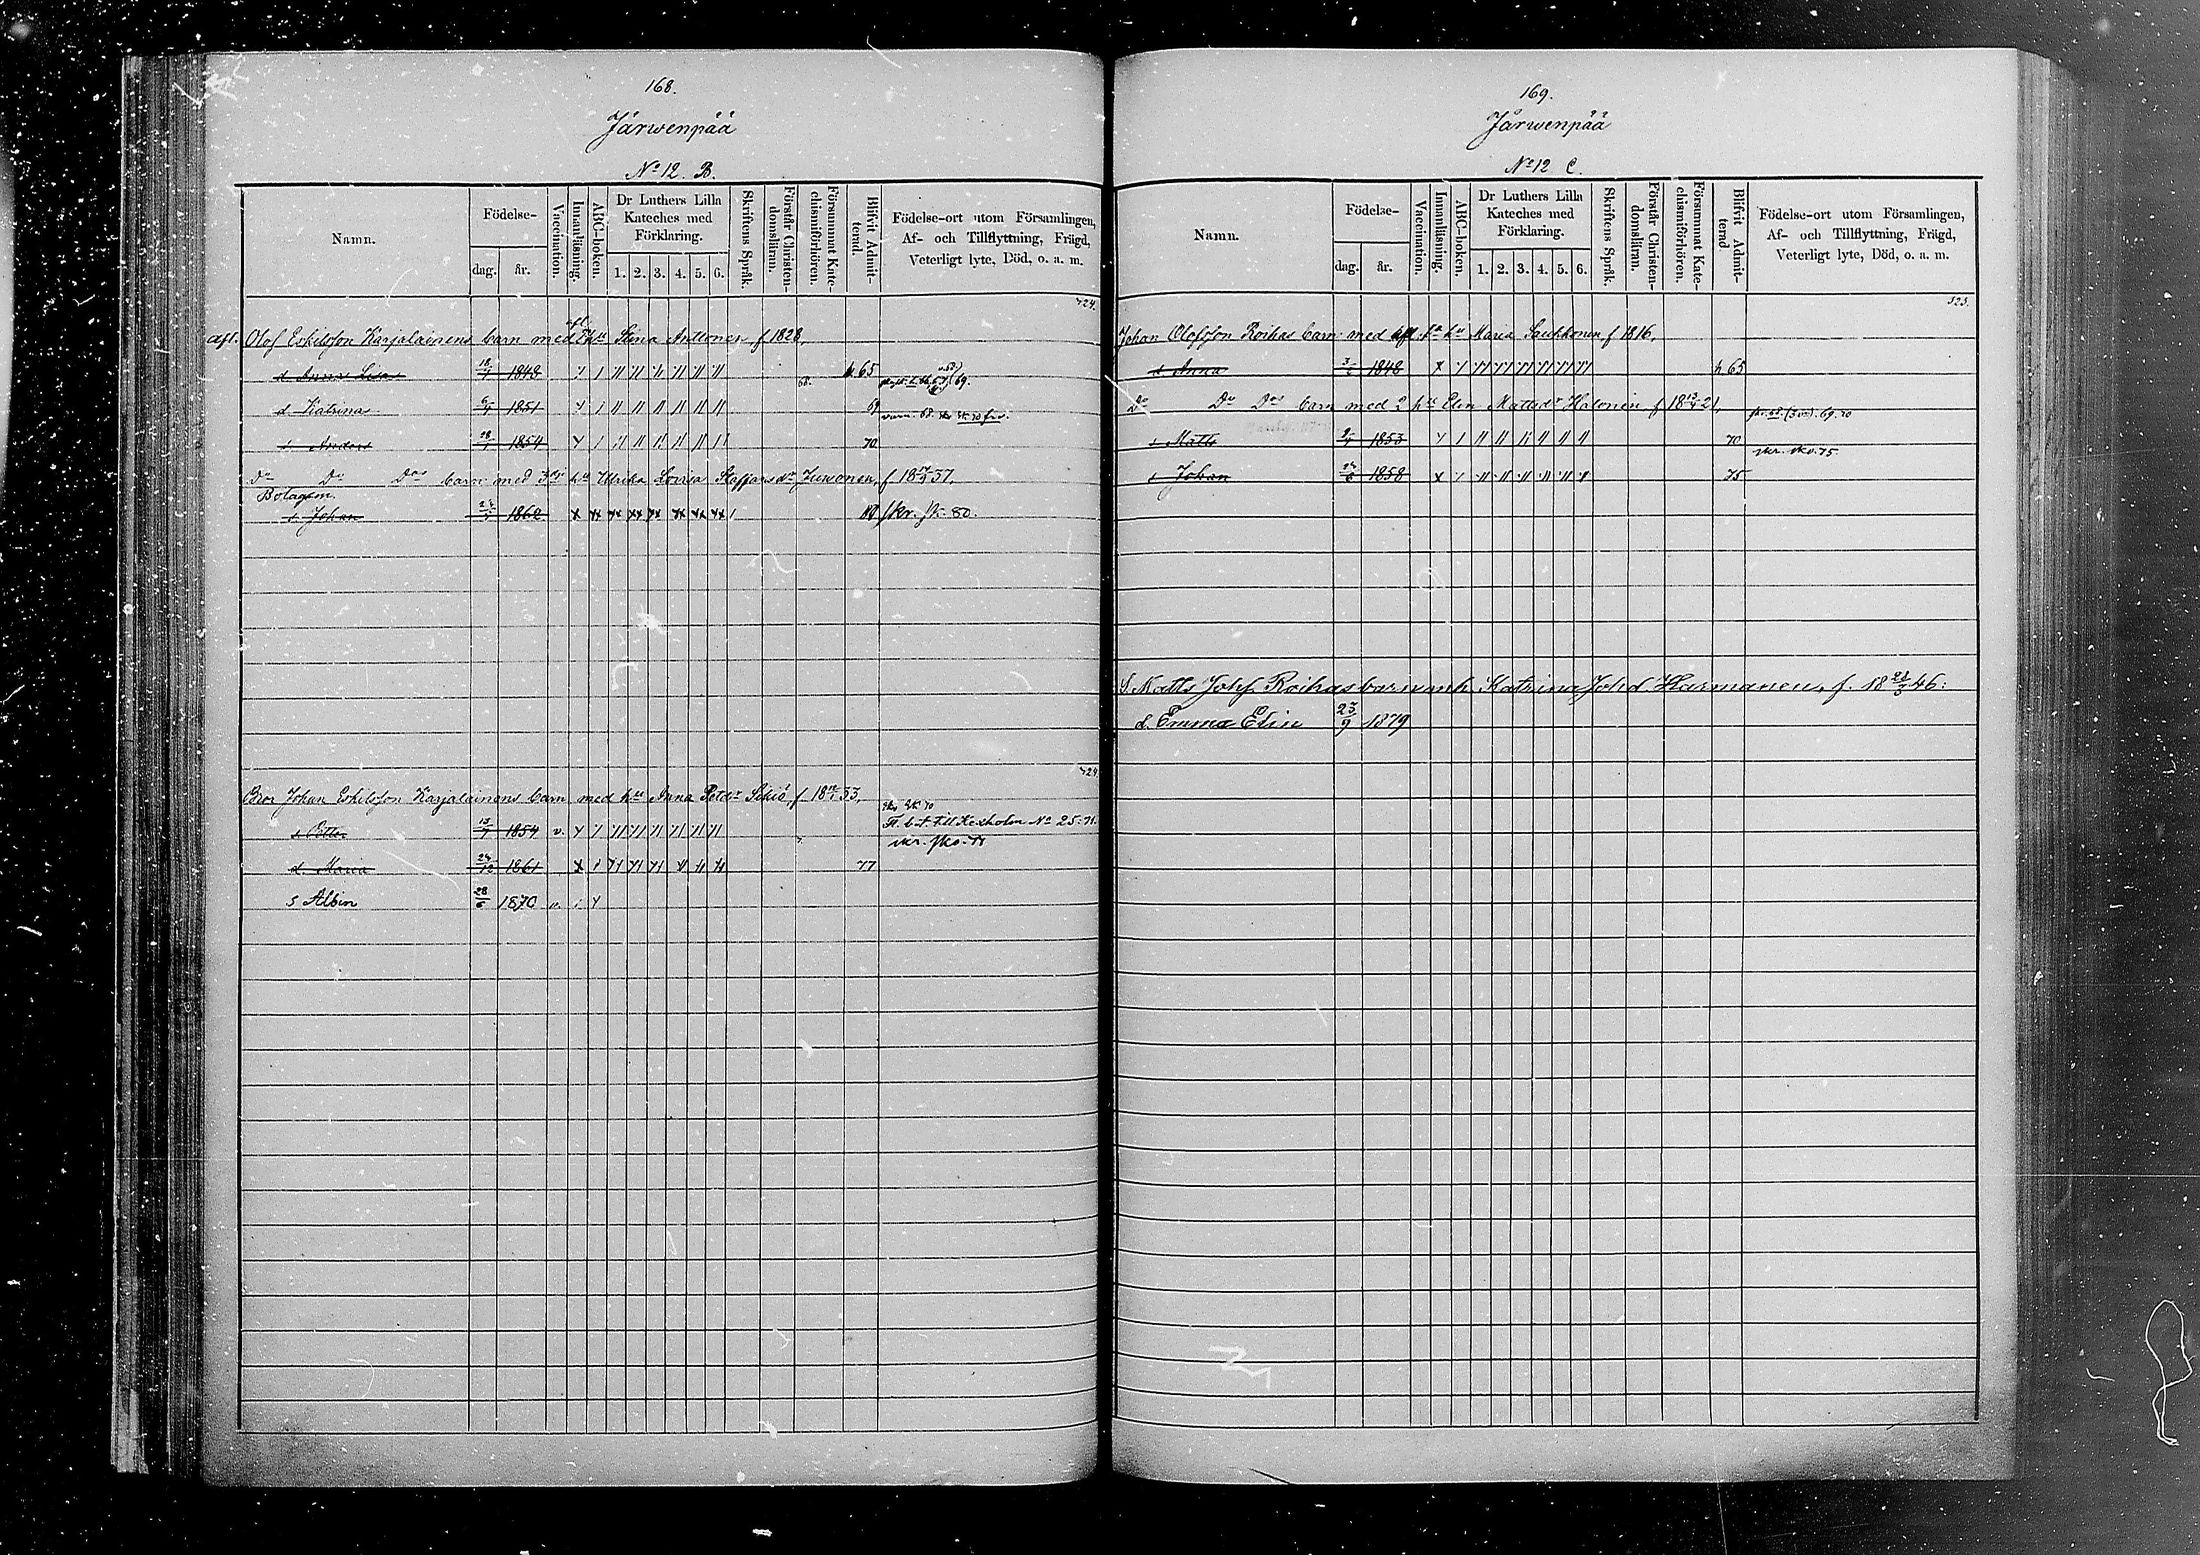 168.
Järwenpää
No 12. B.
Namn.
Födelse-
dag. år.
Vaccination.
Innanläsning.
ABC-boken.
Dr Luthers Lilla Kateches med Förklaring.
1. 2. 3. 4. 5. 6.
Skriftens Språk.
Förstår Christendomsläran.
Försummat Katechismiförhören.
Blifvit Admitterad.
Födelse-ort utom Församlingen, Af- och Tillflyttning, Frägd, Veterligt lyte, Död, o. a. m.
afl. Olof Eskilsson Karjalainens barn med hu Stina Anttonen f 1828,
d Anna Lisa 18/4 1848 65
d Katrina 6/4 1851 69
s Anders 28/1 1854 70
Do Do Dos barn med 3dje hu Ulrika Lovisa Staffansdr Juwonen, f
Bolagsm.
s Johan 1862 skr. sk. 80.
424.
Bror Johan Eskilsson Karjalainens barn med hu Anna Petdr Sikiö, f 18 33,
s Petter 13/7 1854 v. Fl. b. t. till Kexholm No 25. 71.
d Maria 24/12 1861 77
s Albin 28/6 1870 v.
169.
Järwenpää
No 12 C.
Namn.
Födelse-
dag. år.
Vaccination.
Innanläsning.
ABC-boken.
Dr Luthers Lilla Kateches med Förklaring.
1. 2. 3. 4. 5. 6.
Skriftens Språk.
Förstår Christendomsläran.
Försummat Katechismiförhören.
Blifvit Admitterad
Födelse-ort utom Församlingen, Af- och Tillflyttning, Frägd, Veterligt lyte, Död, o. a. m.
Johan Olofsson Roihas barn med hu Maria Saukkonen f 1816,
d Anna 1848 h 65
Do Do Dos barn med 2 hu Elin Mattsdr Halonen f
s Matts 1853 70 skr. sko. 75
s Johan 1858 75
S Matts Johs. Roihas barn m h. Katrina Joh d. Harmanen, f. 18 46.
d. Emma Elin 23/9 1879